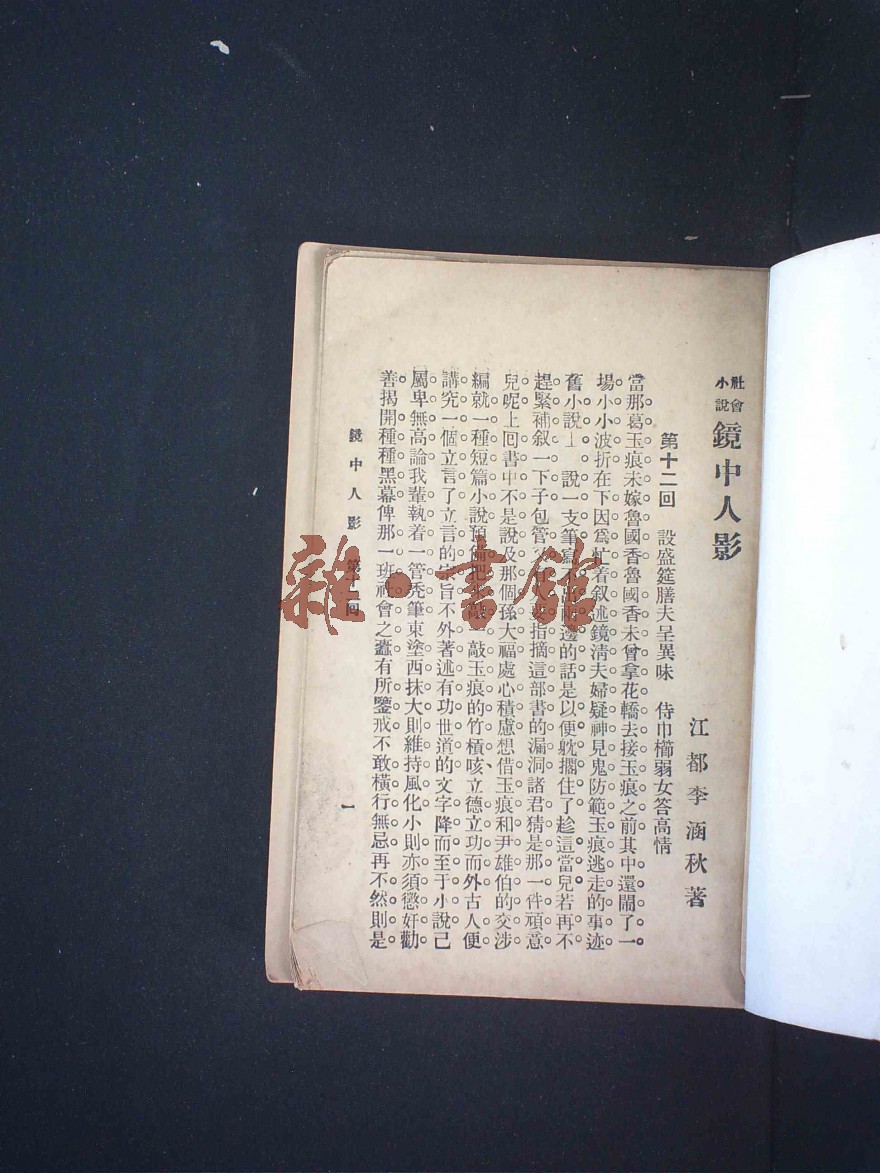 社會小說 鏡中人影
江都李涵秋著
第十二回 設盛筵膳夫呈異味 侍巾櫛弱女答高情
當那葛玉痕未嫁魯國香魯國香未曾拿花轎去接玉痕之前其中還鬧了一
場小小波折在下因爲忙着叙述鏡清夫婦疑神見鬼防範玉痕逃走的事迹
舊小說上 說一支筆寫不出兩邊的話是以便躭擱住了趁這當兒若再不
趕緊補叙一下子包管又有 要指摘這部書的漏洞諸君猜是那一件頑意
兒呢上回書中不是說及那個孫大福處心積慮想借玉痕和尹雄伯的交涉
編就一種短篇小說預備把來敲一敲玉痕的竹槓咳立德立功而外古人便
講究一個立言了立言的宗旨不外著述有功世道的文字降而至于小說己
屬卑無高論我輩執着一管禿筆東塗西抹大則維持風化小則亦須懲奸勸
善揭開種種黑幕俾那一班社會之蠹有所鑒戒不敢橫行無忌再不然則是
鏡中人影 第十二回 一
雜·書館